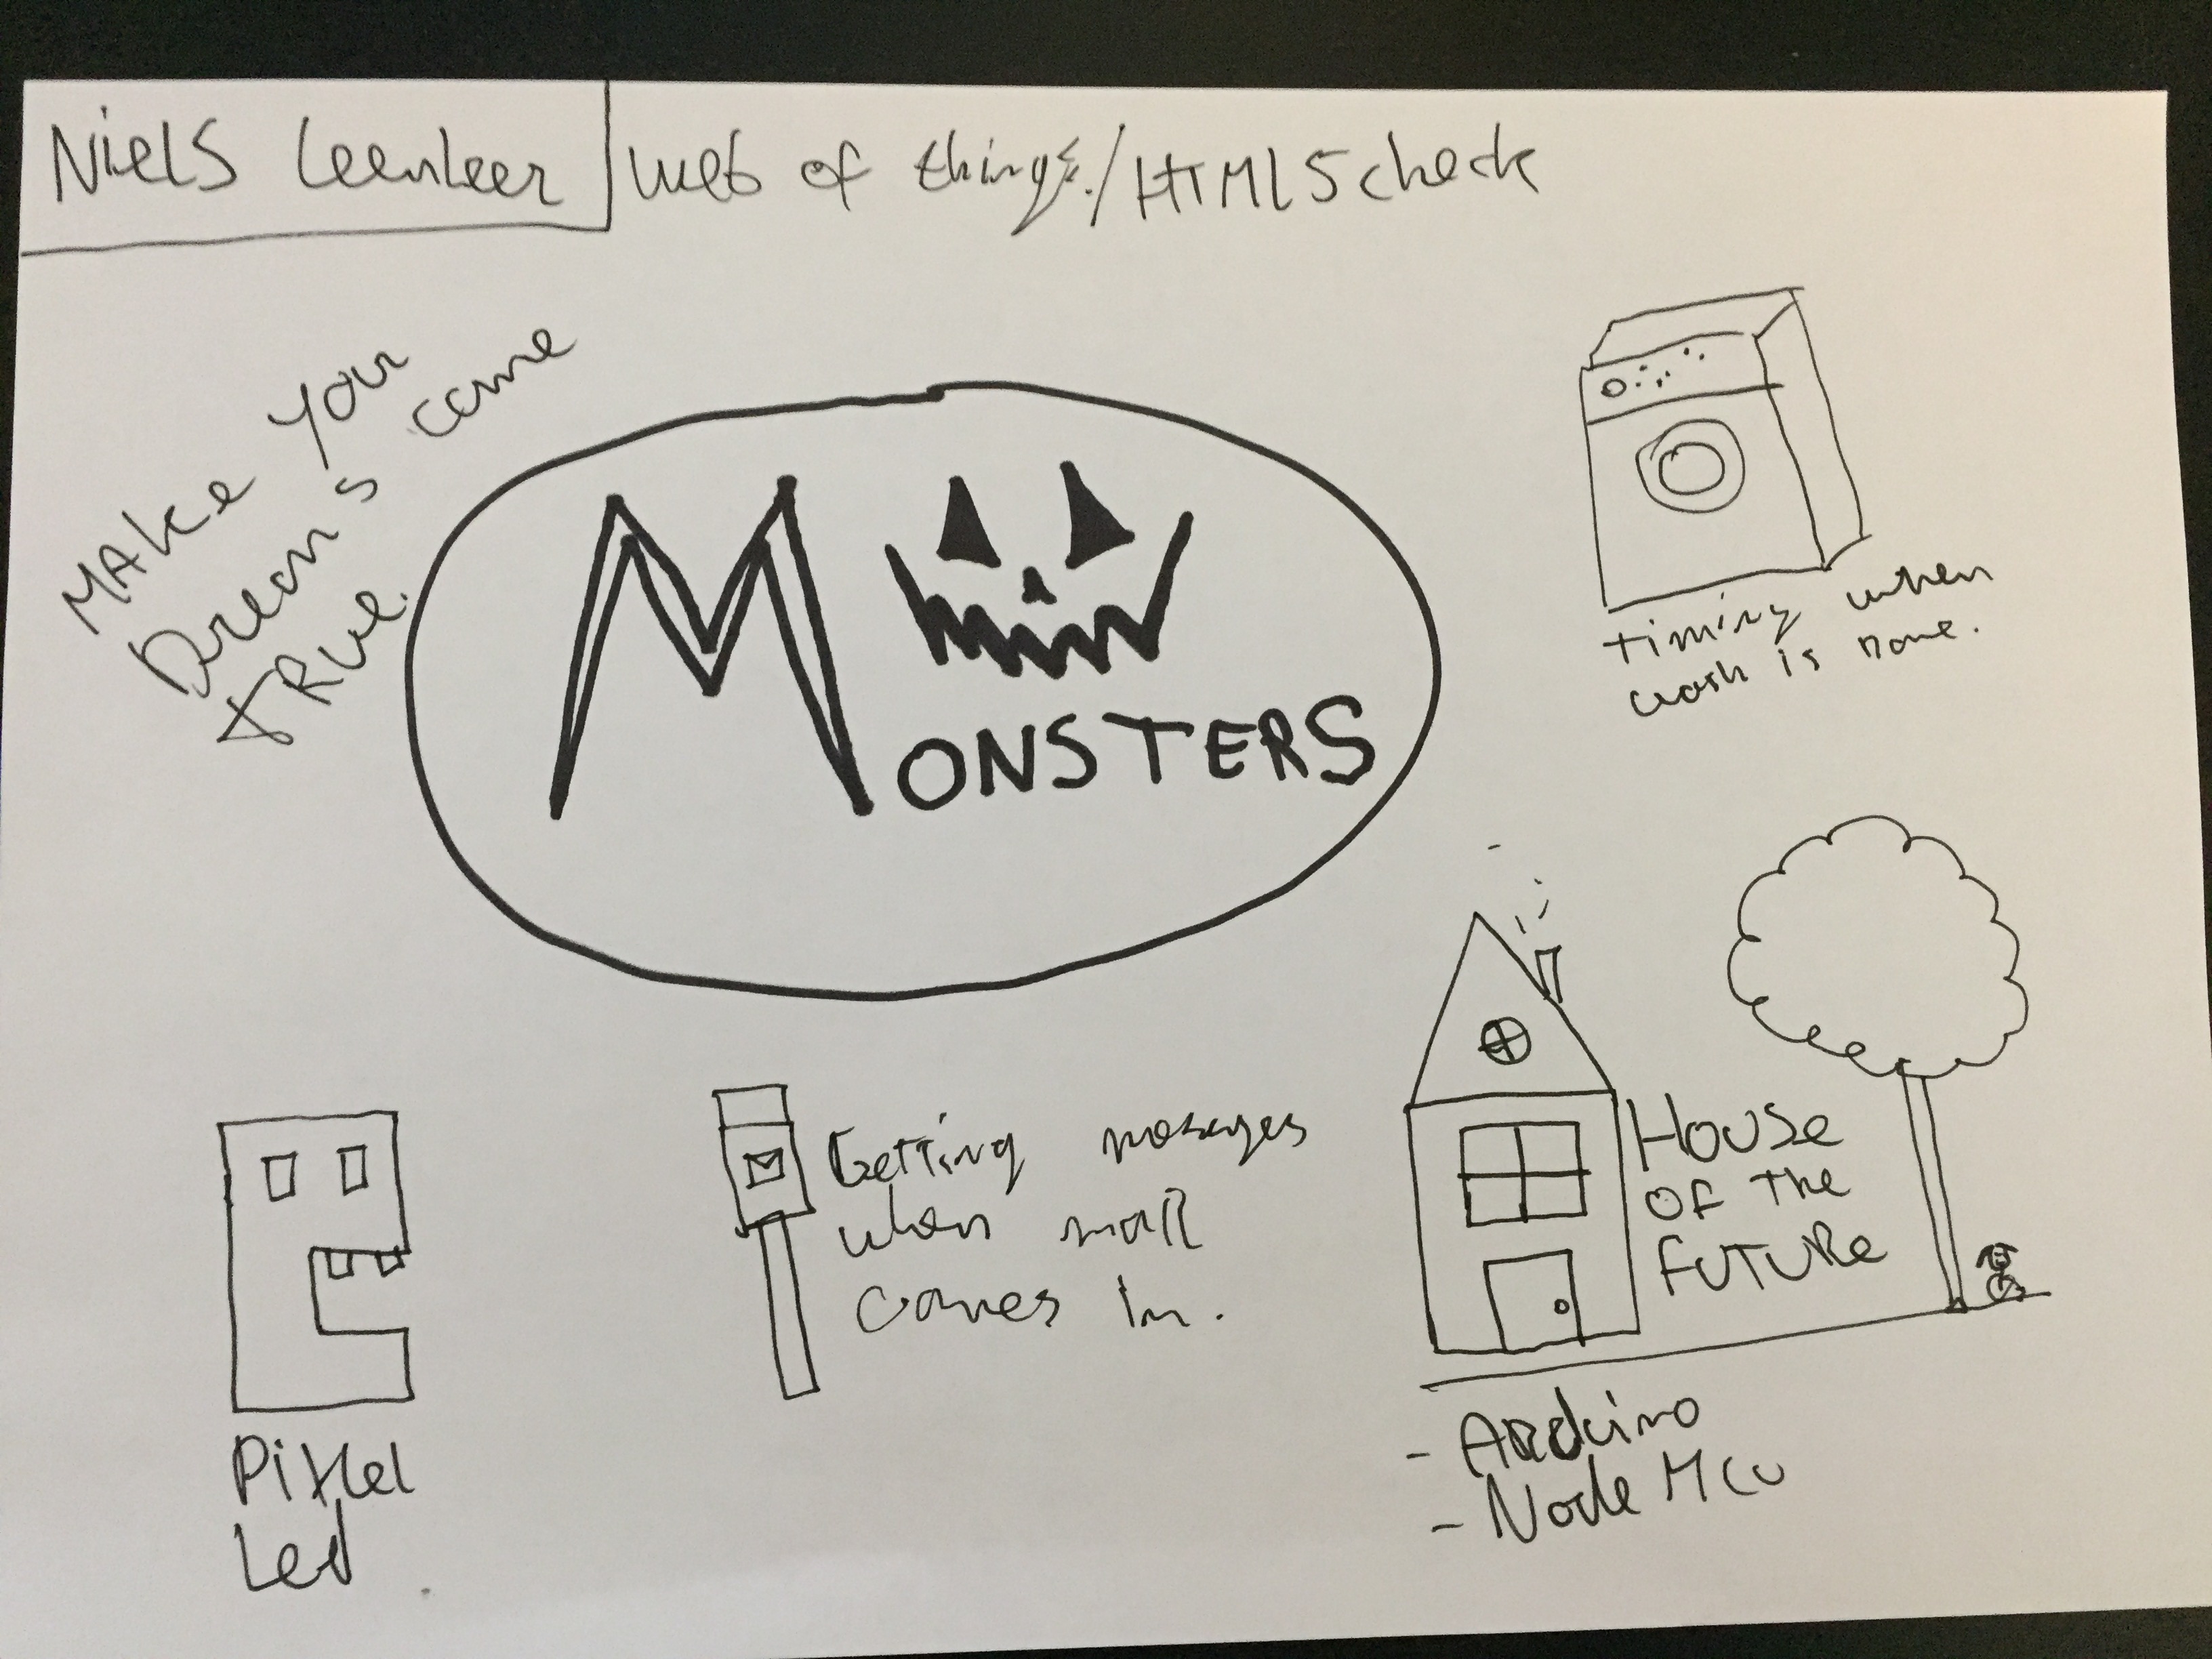 Niels Leenheer
web of things./HTML5check
MAke Your
Dreams come
tRue.
MONSTERS
timing when
wash is done.
Getting messages
when mail
comes in.
House
of the
FUTURe
- Arduino
- Node MCU
Pixel
Led